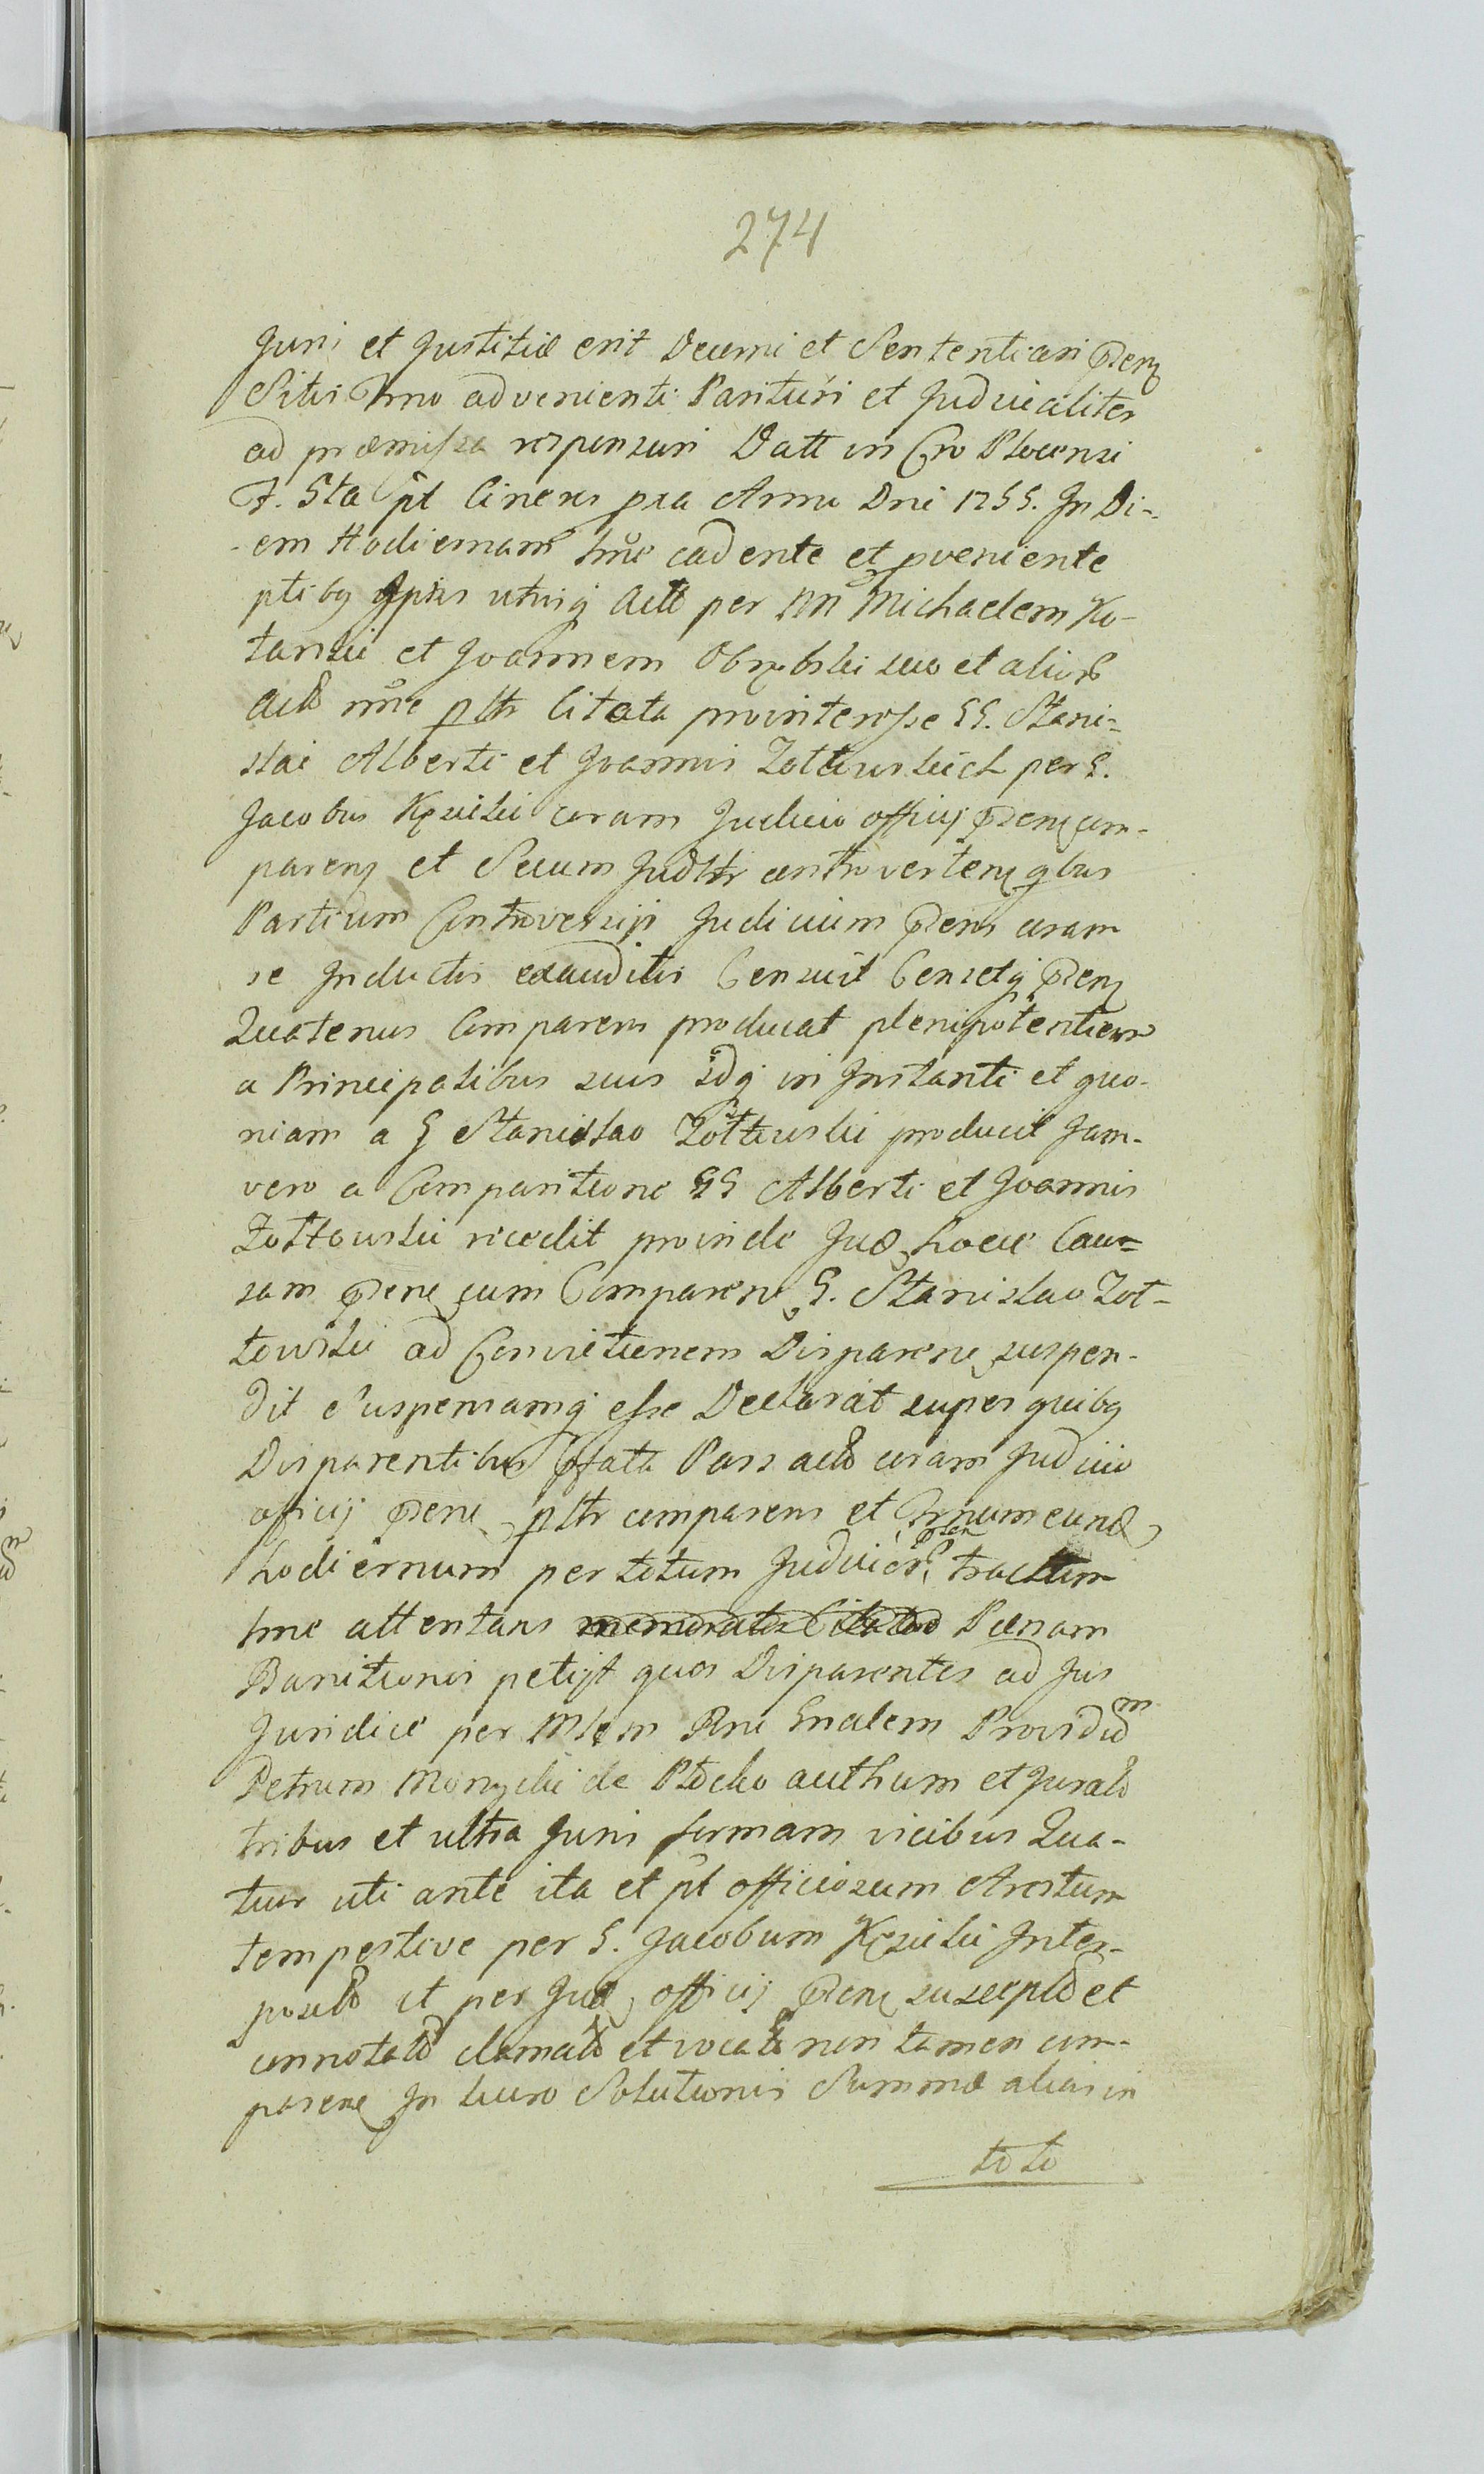 274
Juri et Justitiæ erit Decerni et Sententiari Præn
Sitis Trno advenienti Parituri et Judicialiter
ad præmissa responsuri Datt in Cro Plocensi
F. 5ta pt Cineres pxa Anno Dni 1755. In Di-
em Hodiernam tme cadente et pveniente
ptibq Ipsis utriq Actt per MM Michaelem Ko-
tarski et Joannem Obrębski suo et alior
Actt nme pttr Citata prointeresse GG. Stani-
slai Alberti et Joannis Zołtowskich per G.
Jacobus Kęsicki coram Judicio officij præn com-
paren et Secum Judttr controverten qbus
Partium Controversijs Judicium præns coram
se Inductis exauditis Censuit Censetq præn
Quatenus Comparens producat plenipotentiam
a Principalibus suis idq in Instanti et quo-
niam a G Stanislao Zołtowski producit Jam-
vero a Comparitione GG Alberti et Joannis
Zołtowski recedit proinde Jud hocce Cau-
sam præn cum Comparen G. Stanislao Zoł-
towski ad Convictionem Disparen suspen-
dit Suspensamq esse Declarat super quibq
Disparentibus pfata Pars actt coram Judicio
officij præn pttr comparens et Trnum eund
hodiernum per totum Judicior præn tractum
tme attentans Pœnam
Banitionis petijt quos Disparentes ad Jus
Juridice per Mlem Rni Gnalem Providum
Petrum Monycki de Płocko authum et Juratt
tribus et ultra Juris formam vicibus Qua-
tuor uti ante ita et pt officiosum Arestum
tempestive per G. Jacobum Kęsicki Inter-
positt et per Jud officij præn susceptt et
connotatt clamatt et vocatt non tamen com-
paren In lucro Solutionis Summæ alias in
toto